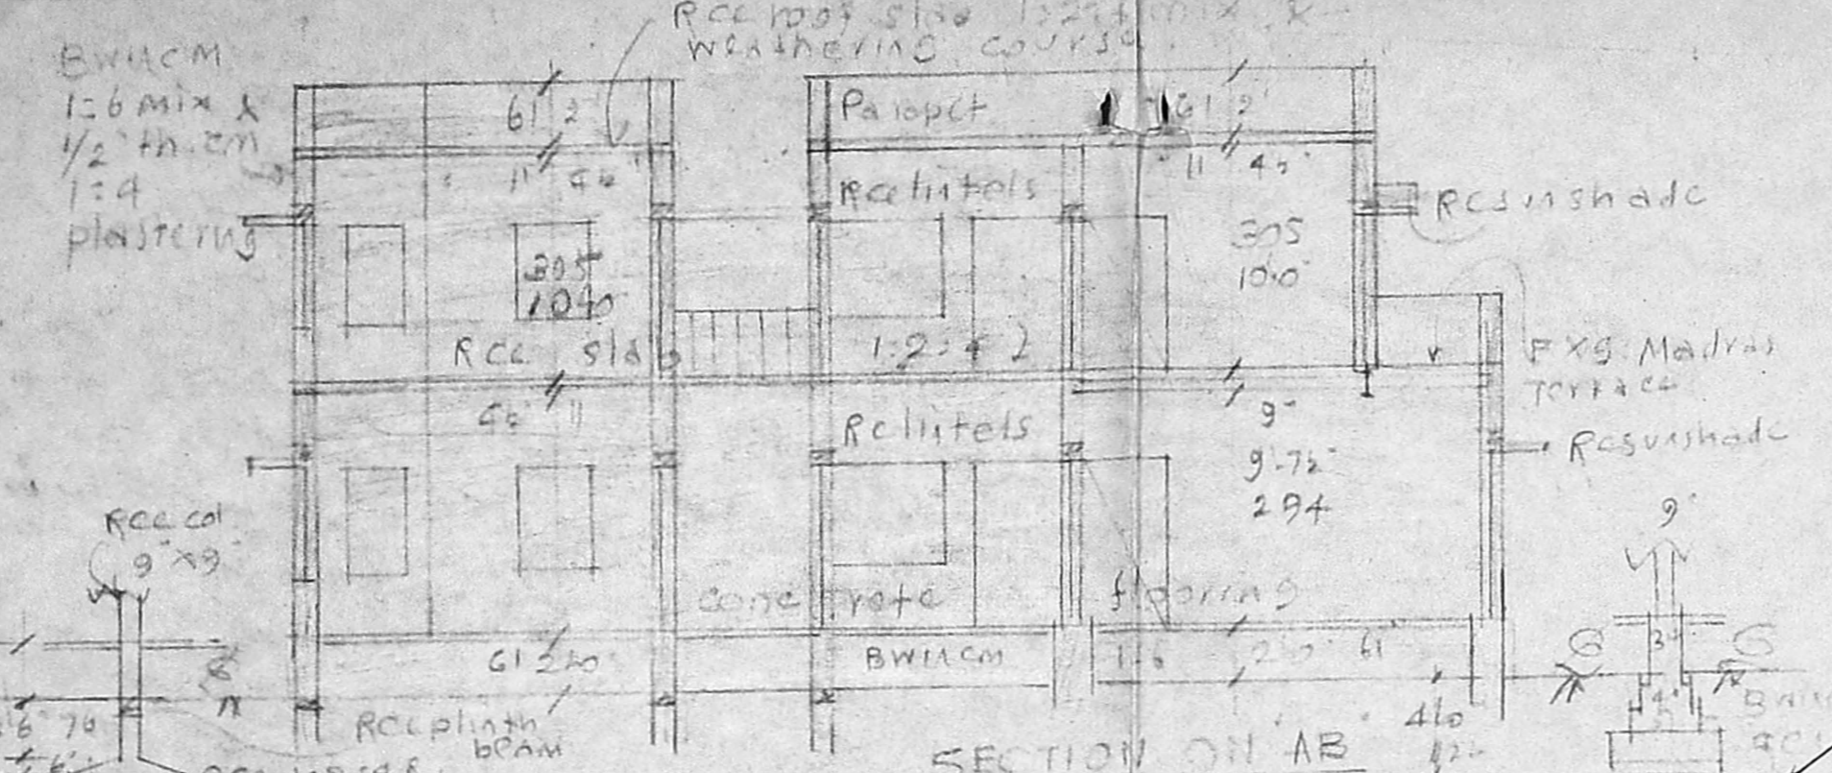 RCC roof slab 1:2:4 mix &
weathering course
BWIICM
1:6 mix &
1/2" th.cm
1:4
plastering
61 2'
Parapet
61 2'
11 4½"
11 4½"
RCC lintels
RC sunshade
305
10'0
305
10'0"
RCC slab
1:2:4
F X 9: Madras
Terrace
4½" 11
RC lintels
9"
RC sunshade
9'-7½"
294
RCC col
9" x 9"
9"
concrete
flooring
6"
61 2'0
BWIICM
1:6
2'0"
61
3"
RCC plinth
beam
SECTION ON AB
4'0